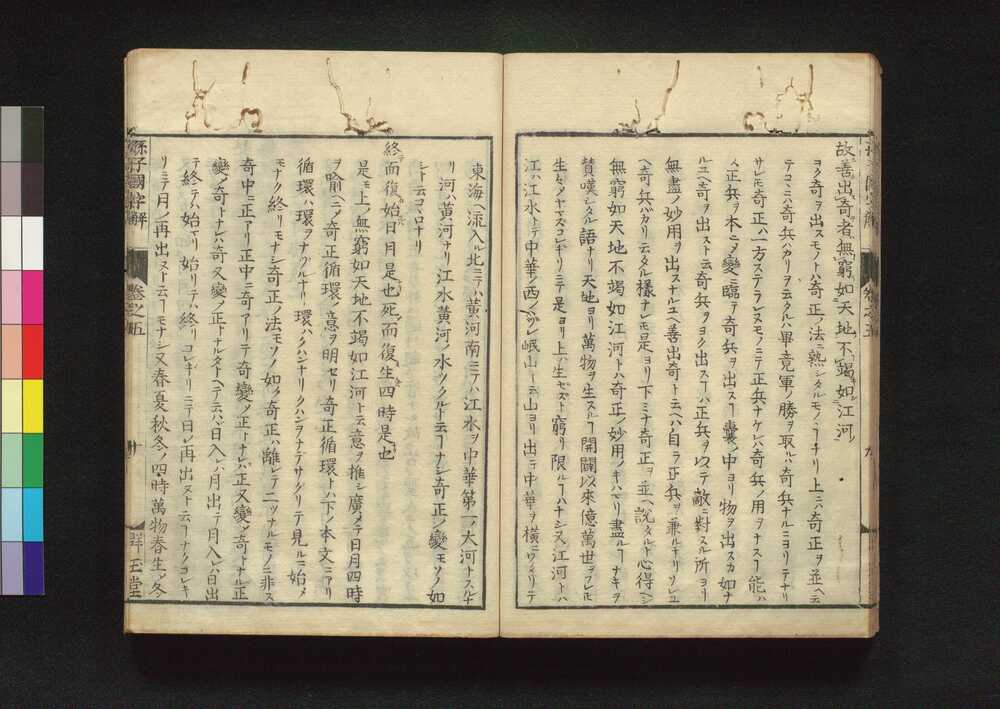 故善出奇者無窮如天地不竭如江河
ヨク奇ヲ出スモノトハ奇正ノ法ニ熟シタルモノヿナリ上ニハ奇正ヲ並ヘ云
テコヽニハ奇兵ハカリヲ云タルハ畢竟軍ノ勝ヲ取ルハ奇兵ナルニヨリテナリ
サレモ奇正ハ一方ステラレヌモノニテ正兵ナケレバ奇兵ノ用ヲナスヿ能ハ
正兵ヲ本ニメ變ニ臨テ奇兵ヲ出スヿ嚢ノ中ヨリ物ヲ出スカ如ナ
ルニ奇ヲ出スト云奇兵ヲヨク出スヿハ正兵ヲ以テ敵ニ對スル所ヨリ
無盡ノ妙用ヲ出スナルユヘ善出奇ト云ヘハ自ラ正兵ヲ兼ルナリソレユ
ヘ奇兵ハカリ云タル様ナレモ是ヨリ下ミナ奇正ヲ並ヘ説タルト心得ヘシ
無窮如天地不竭如江河トハ奇正ノ妙用ノキハマリ盡ルヿナキヲ
賛嘆シタル語ナリ天地ヨリ萬物ヲ生スルヿ開闢以來億萬世ヲフレモ
生シテヤマズコレギリニテ是ヨリ上ハ生セズト窮リ限ルヿハナシ又江河トハ
江ハ江水トテ中華ノ西ノハテ岷山ト云山ヨリ出テ中華ヲ横ニワタリテ
東海ヘ流入ル北ニテハ黄河南ニテハ江水ヲ中華第一ノ大河トスルナ
リ河ハ黄河ナリ江水黄河ノ水ツクルト云ヿナシ奇正ノ變モソノ如
シト云コヽロナリ
終而復始日月是也死而復生四時是也
是モ上ノ無窮如天地不竭如江河ト云意ヲ推シ廣メテ日月四時
ヲ喩ヘニメ奇正循環ノ意ヲ明セリ奇正循環トハ下ノ本文ニアリ
循環ハ環ヲナブルナリ環ハクハンナリクハンヲナデサグリテ見ルニ始メ
モナク終リモナシ奇正ノ法モソノ如ク奇正ハ離レテニツナルモノニ非ス
奇中ニ正アリ正中ニ奇アリテ奇變メ正トナレバ正又變メ奇トナル正
變メ奇トナレハ奇又變メ正トナルタトヘテ云ハヾ日入レハ月出テ月入レハ日出
テ終テハ始マリ始リテハ終リコレギリニテ日ノ再出ヌト云ヿナクコレキ
リニテ月ノ再出ヌト云ヿモナシ又春夏秋冬ノ四時萬物春生シ冬
孫子國字解
卷之五
十
群玉堂